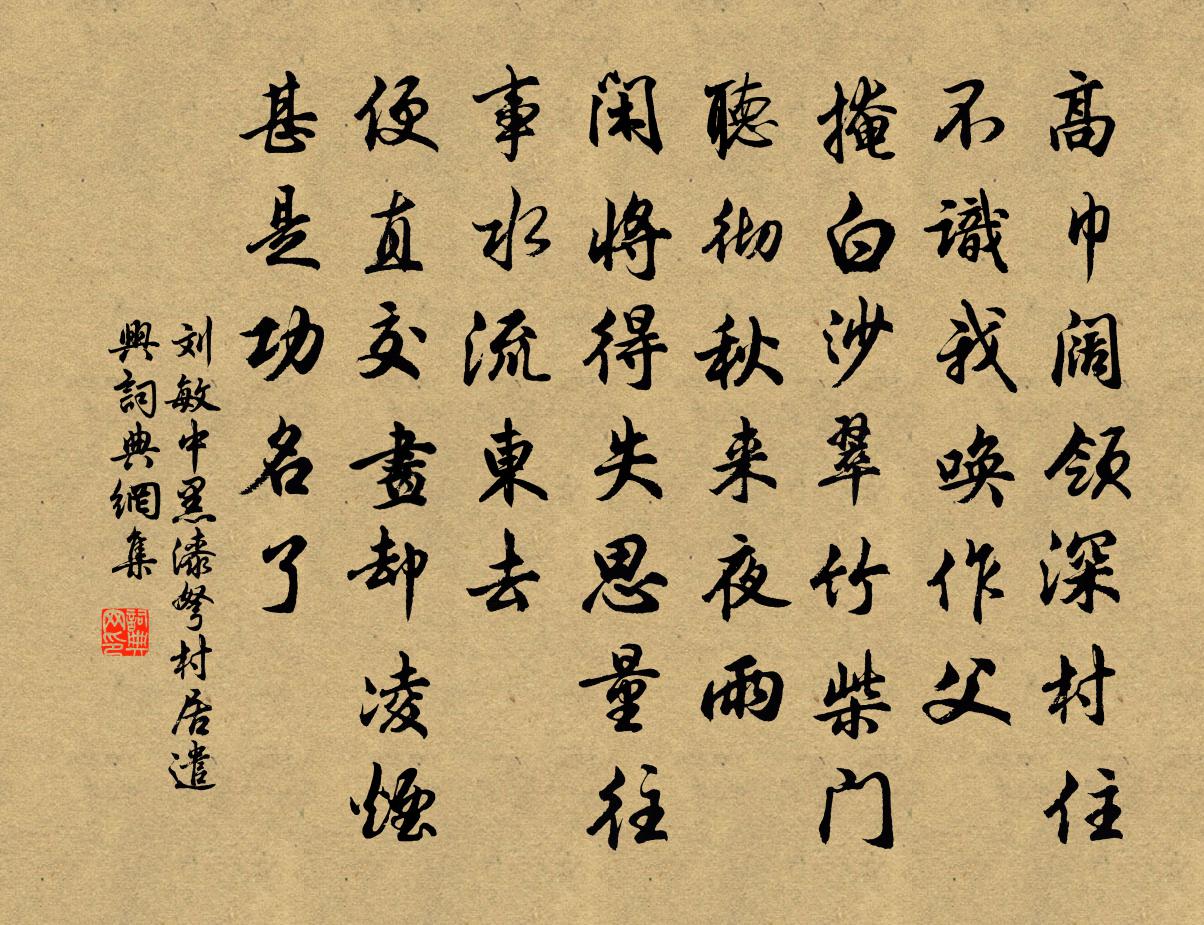 高巾阔领深村住
不識我喚作父
掩白沙翠竹柴门
聽彻秋来夜雨
闲將得失思量往
事水流東去
便直交畫却凌煙
甚是功名了
刘敏中黑漆弩村居遣
興詞典網集
詞典
网印